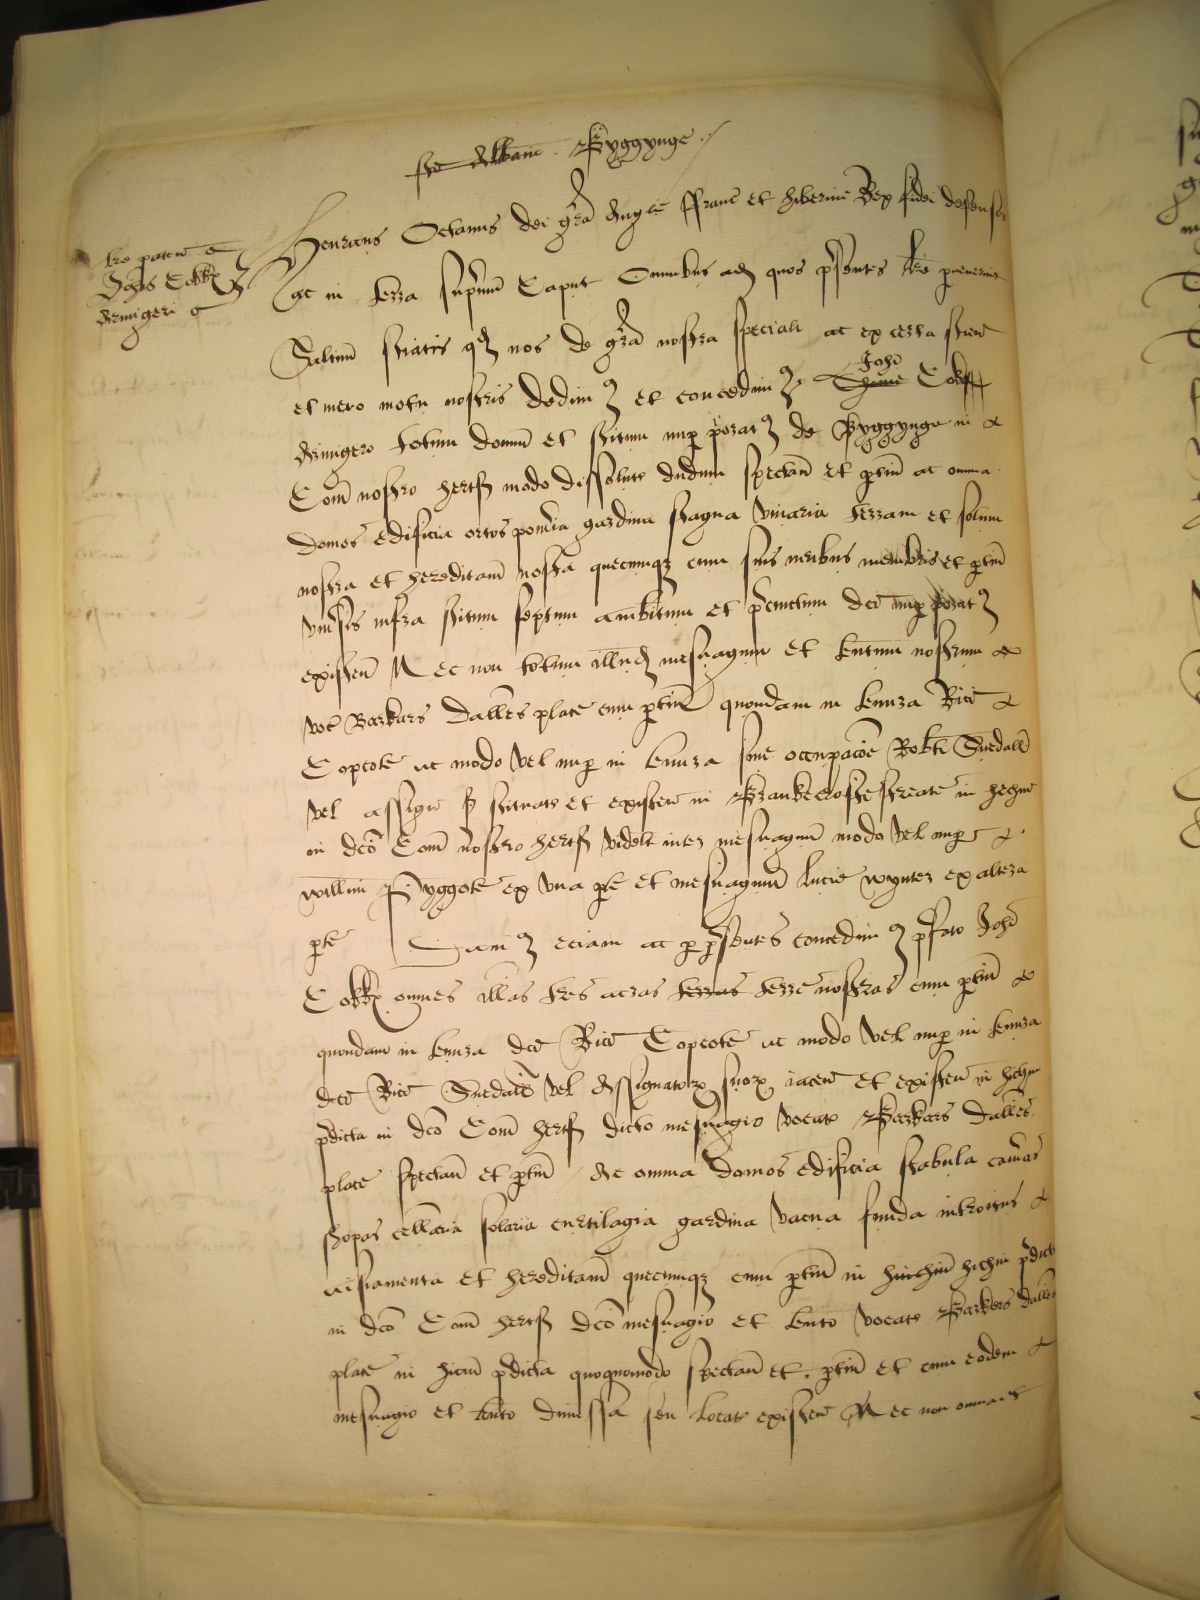 Sce Albani Byggynge
lre paten
Johis Cokk
Armigeri
Henricus Octavus dei gra Anglie ffranc et hibernie Rex fidei defensor
ac in terra supmu Caput Omnibus ad quos psentes lre pvenerint
Saltm Sciatis qd nos de gra nostra speciali ac ex certa scien
et mero motu nostris dedimus et concedimus Thome Johi Cokk
Armigero totum domu et scitum nup porat de Byggynge in
Com nostro hertf modo dissolut dudum spectan et ptin ac omnia
domos edificia ortos pomia gardina stagna vivaria terram et solum
nostra et hereditam nostra quecumqz cum suis iuribus membris et ptin
univsis infra scitum septum ambitum et pcinctum dci nup porat
existen Nec non totum illud mesuagium et tentum nostrum
voc Barkers dalles place cum ptin quondam in tenura Rici
Copcote ac modo vel nup in tenura sive occupacoe Robti Snedall
vel assign situat et existen in Bankcroftestreate in hechin
in dco Com nostro hertf videlt inter mesuagium modo vel nup
willmi Pyggote ex una pte et mesuagium lucie wynter ex altera
pte Damus eciam ac p psentes concedimus pfato Johi
Cokk omnes illas tres acras terras terre nostras cum ptin
quondam in tenura dci Rici Copcote ac modo vel nup in tenura
dci Rici Snedale vel Assignator suor iacen et existen in hichin
pdicta in dco Com hertf dicto mesuagio vocat Barkers dalles
place spectan et ptin Ac omnia domos edificia stabula camas
shopas cellaria solaria curtilagia gardina vacua funda introitus
aisiamenta et hereditam quecumqz cum ptin in hinchin hichin pdict
in dco Com hertf dco mesuagio et tento vocat Barkers dalles
place in hichin pdicta quoquomodo spectan et ptin et cum eodem
mesuagio et tento dimissa seu locat existen Nec non omnia